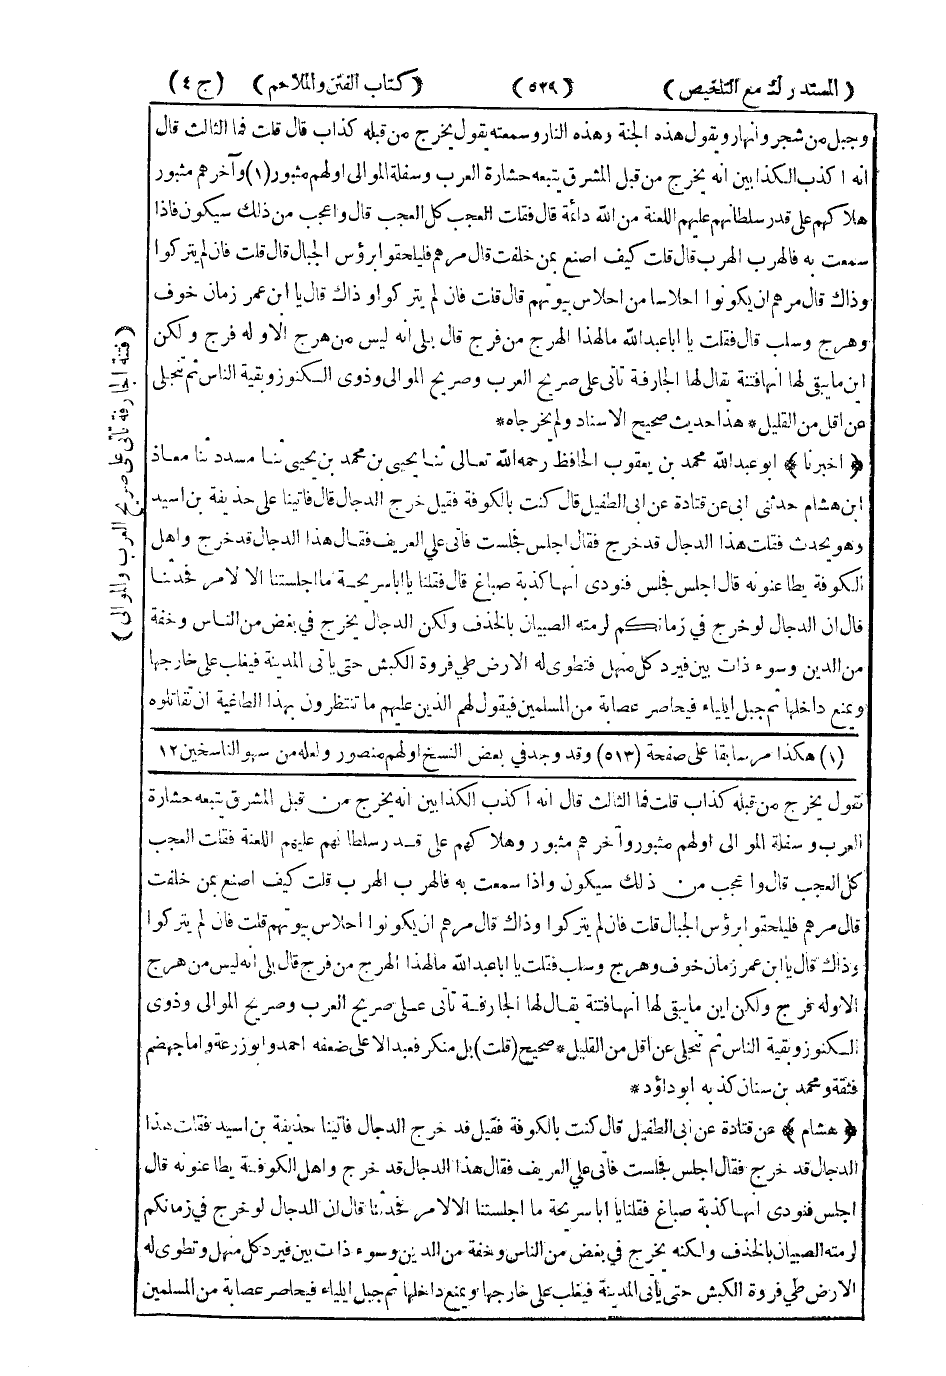 (المستدرك مع التلخيص) (٥٢٩) (كتاب الفتن والملاحم) (ج ٤)
وجبل من شجر وانهار ويقول هذه الجنة وهذه النار وسمعته يقول يخرج من قبله كذاب قال قلت فما الثالث قال
انه اكذب الكذابين انه يخرج من قبل المشرق يتبعه حشارة العرب وسفلة الموالى اولهم مثبور (١) وآخرهم مثبور
هلاكهم على قدر سلطانهم عليهم اللعنة من الله دائمة قال فقلت العجب كل العجب قال واعجب من ذلك سيكون فاذا
سمعت به فالهرب الهرب قال قلت كيف اصنع بمن خلفت قال مرهم فليلحقوا برؤس الجبال قال قلت فان لم يتركوا
وذاك قال مرهم ان يكونوا احلاسا من احلاس بيوتهم قال قلت فان لم يتركوا وذاك قال يا ابن عمر زمان خوف
وهرج وسلب قال فقلت يا اباعبدالله مالهذا الهرج من فرج قال بلى انه ليس من هرج الا وله فرج ولكن
اين مايبقى لها انها فتنة يقال لها الجارفة تأتى على صريح العرب وصريح الموالى وذوى الكنوز وبقية الناس ثم تنجلى
عن اقل من القليل * هذا حديث صحيح الاسناد ولم يخرجاه *
﴿ اخبرنا ﴾ ابو عبدالله محمد بن يعقوب الحافظ رحمه الله تعالى ثنا يحيى بن محمد بن يحيى ثنا مسدد ثنا معاذ
ابن هشام حدثنى ابى عن قتادة عن ابى الطفيل قال كنت بالكوفة فقيل خرج الدجال قال فاتينا على حذيفة بن اسيد
وهو يحدث فقلت هذا الدجال قد خرج فقال اجلس فجلست فأتى على العريف فقال هذا الدجال قد خرج واهل
الكوفة يطاعنونه قال اجلس فجلس فنودى انها كذبة صباغ قال فقلنا يا اباسريحة ما اجلستنا الا لامر فحدثنا
قال ان الدجال لو خرج في زمانكم لرمته الصبيان بالخذف ولكن الدجال يخرج في بغض من الناس وخفة
من الدين وسوء ذات بين فيرد كل منهل فتطوى له الارض طي فروة الكبش حتى يأتى المدينة فيغلب على خارجها
ويمنع داخلها ثم جبل ايلياء فيحاصر عصابة من المسلمين فيقول لهم الذين عليهم ما تنتظرون بهذا الطاغية ان تقاتلوه
(فتنة الجارفة تأتى على صريح العرب والموالى)
(١) هكذا مر سابقا على صفحة (٥١٣) وقد وجد في بعض النسخ اولهم منصور ولعله من سهو الناسخين ١٢
تقول يخرج من قبله كذاب قلت فما الثالث قال انه اكذب الكذابين انه يخرج من قبل المشرق يتبعه حشارة
العرب وسفلة الموالى اولهم مثبور وآخرهم مثبور وهلاكهم على قدر سلطانهم عليهم اللعنة فقلت العجب
كل العجب قال واعجب من ذلك سيكون واذا سمعت به فالهرب الهرب قلت كيف اصنع بمن خلفت
قال مرهم فليلحقوا برؤس الجبال قلت فان لم يتركوا وذاك قال مرهم ان يكونوا احلاس بيوتهم قلت فان لم يتركوا
وذاك قال يا ابن عمر زمان خوف وهرج وسلب فقلت يا اباعبدالله مالهذا الهرج من فرج قال بلى انه ليس من هرج
الا وله فرج ولكن اين مايبقى لها انها فتنة يقال لها الجارفة تأتى على صريح العرب وصريح الموالى وذوى
الكنوز وبقية الناس ثم تنجلى عن اقل من القليل * صحيح (قلت) بل منكر فعبد الاعلى ضعفه احمد وابو زرعة واما جهضم
فثقة ومحمد بن سنان كذبه ابو داؤد *
﴿ هشام ﴾ عن قتادة عن ابى الطفيل قال كنت بالكوفة فقيل قد خرج الدجال فاتينا حذيفة بن اسيد فقلت هذا
الدجال قد خرج فقال اجلس فجلست فأتى على العريف فقال هذا الدجال قد خرج واهل الكوفة يطاعنونه قال
اجلس فنودى انها كذبة صباغ فقلنا يا اباسريحة ما اجلستنا الا لامر فحدثنا قال ان الدجال لو خرج في زمانكم
لرمته الصبيان بالخذف ولكنه يخرج في بغض من الناس وخفة من الدين وسوء ذات بين فيرد كل منهل وتطوى له
الارض طي فروة الكبش حتى يأتى المدينة فيغلب على خارجها ويمنع داخلها ثم جبل ايلياء فيحاصر عصابة من المسلمين